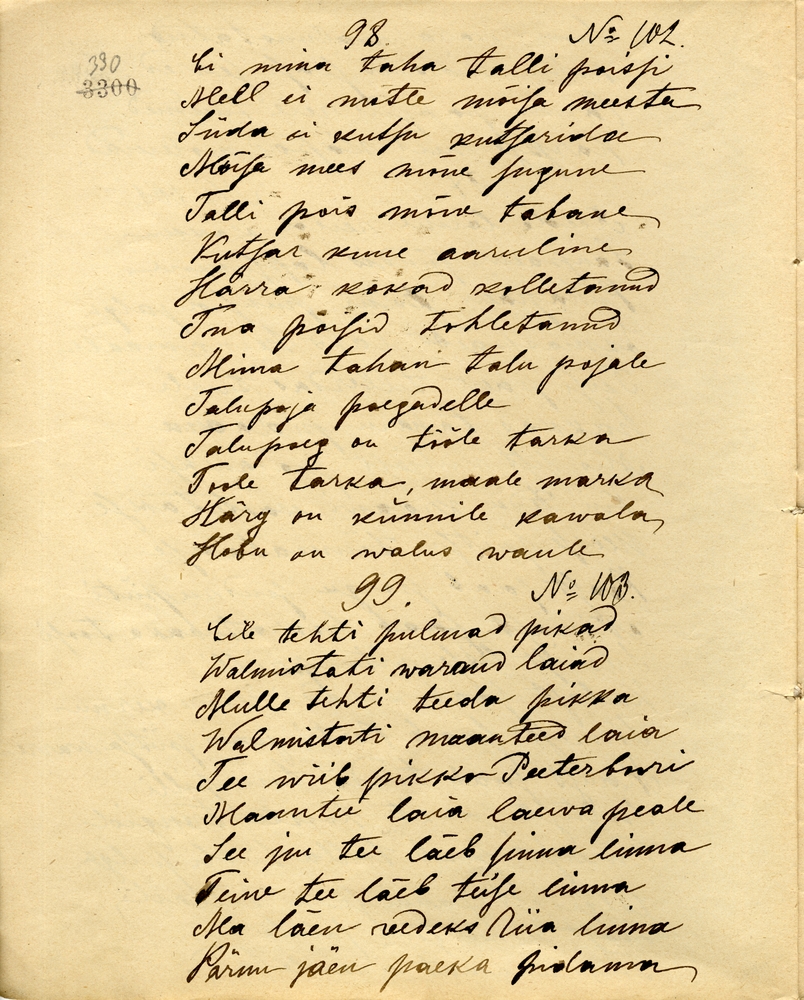 98. № 102.
390
3300
Ei mina taha talli poissi
Meel ei mõtle mõisa meesta
Süda ei kutsu kutsarida
Mõisa mees mõne sugune
Talli pois mõne tabane
Kutsar kuue aaruline
Härra kokad kolletanud
Toa poisid tohletanud
Mina tahan talu pojale
Talupoja poegadelle
Talupoeg on tööle tarka
Toole tarka, maale marka
Härg on künnile kawala
Hobu on walus waule
99. № 103.
Eile tehti pulmad pikad
Walmistati warrud laiad
Mulle tehti teeda pikka
Walmistati maanteed laia
Tee wiib pikka Peeterburi
Maantee laia laewa peale
See ju tee läeb sinna linna
Teine tee läeb teise linna
Ma läen reedeks Riia linna
Pärnu jäen paeka pidama